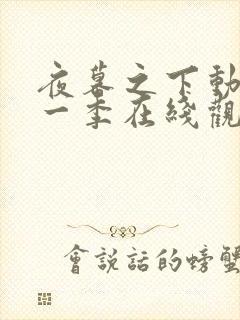 夜幕之下動
一季在綫觀
會說話的螃蟹